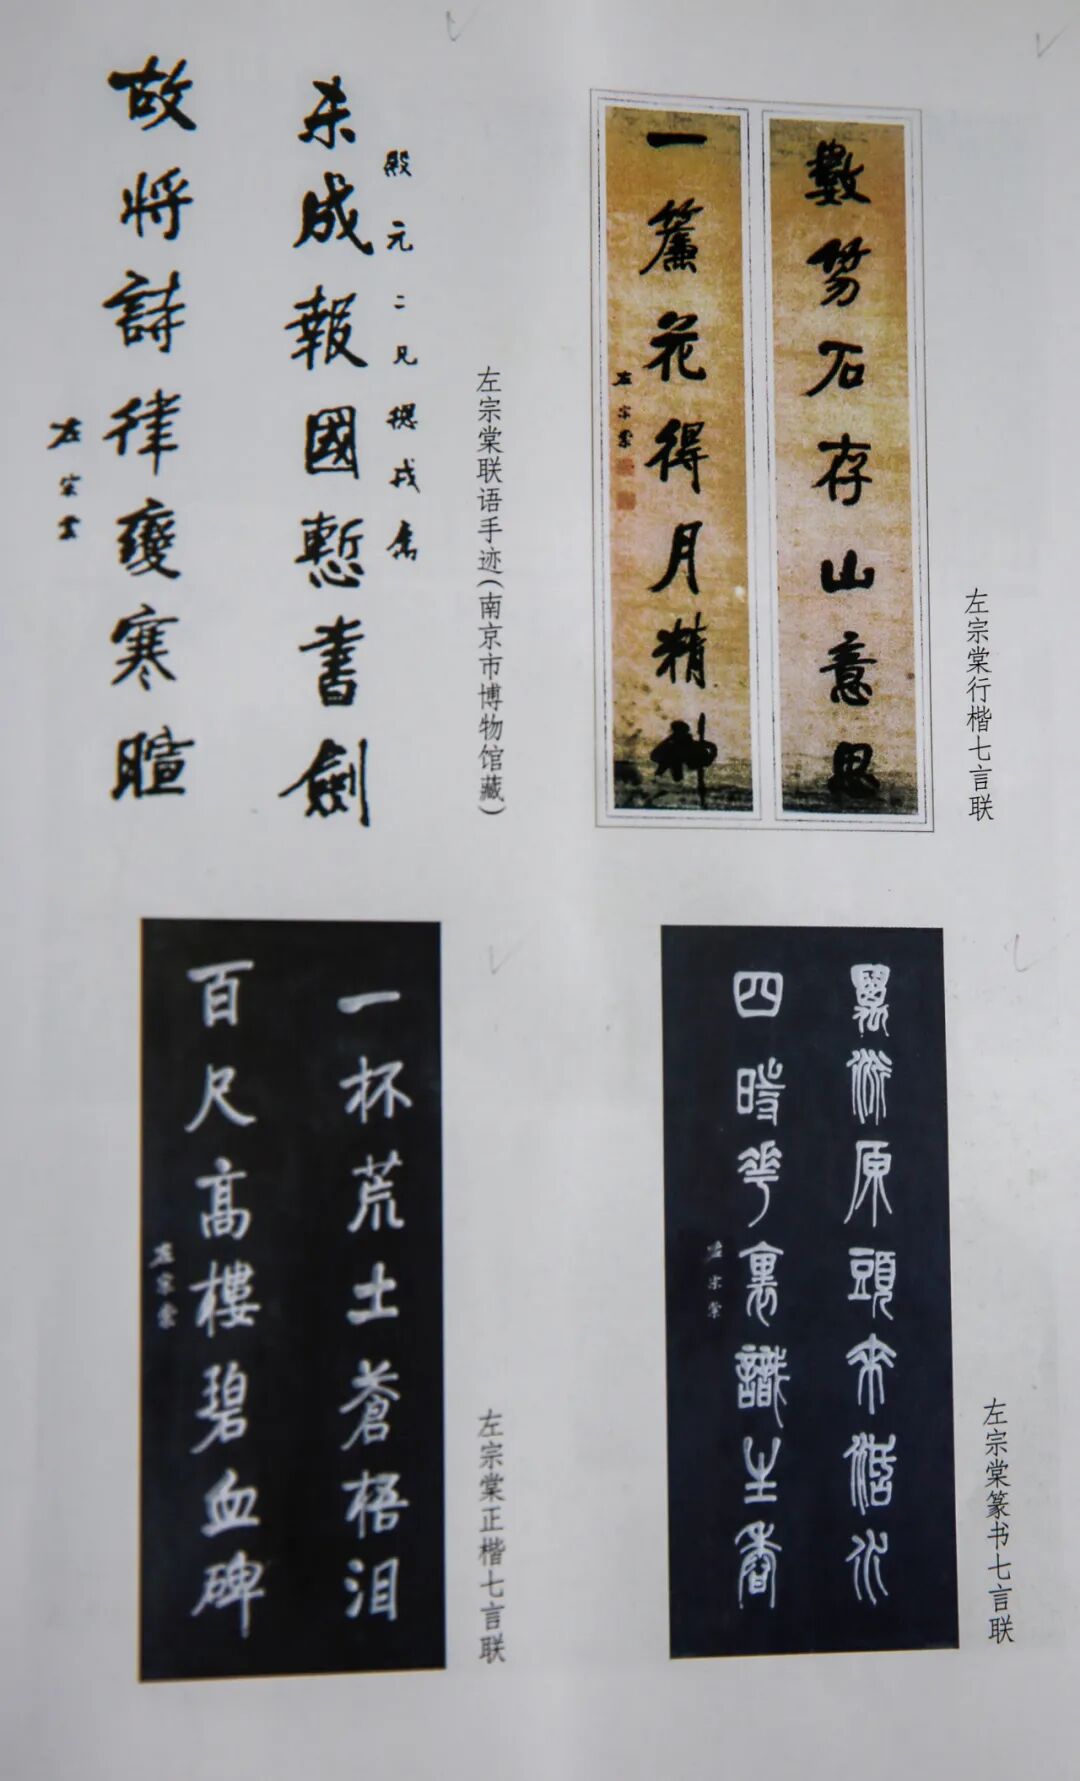 數笏石存山意思
一簾花得月精神
左宗棠
左宗棠行楷七言联
殿元二兄總戎屬
未成報國慙書劍
故將詩律變寒暄
左宗棠
左宗棠联语手迹(南京市博物馆藏)
萬派原頭來活水
四時花裏識生香
左宗棠
左宗棠篆书七言联
一杯荒土蒼梧泪
百尺高樓碧血碑
左宗棠
左宗棠正楷七言联